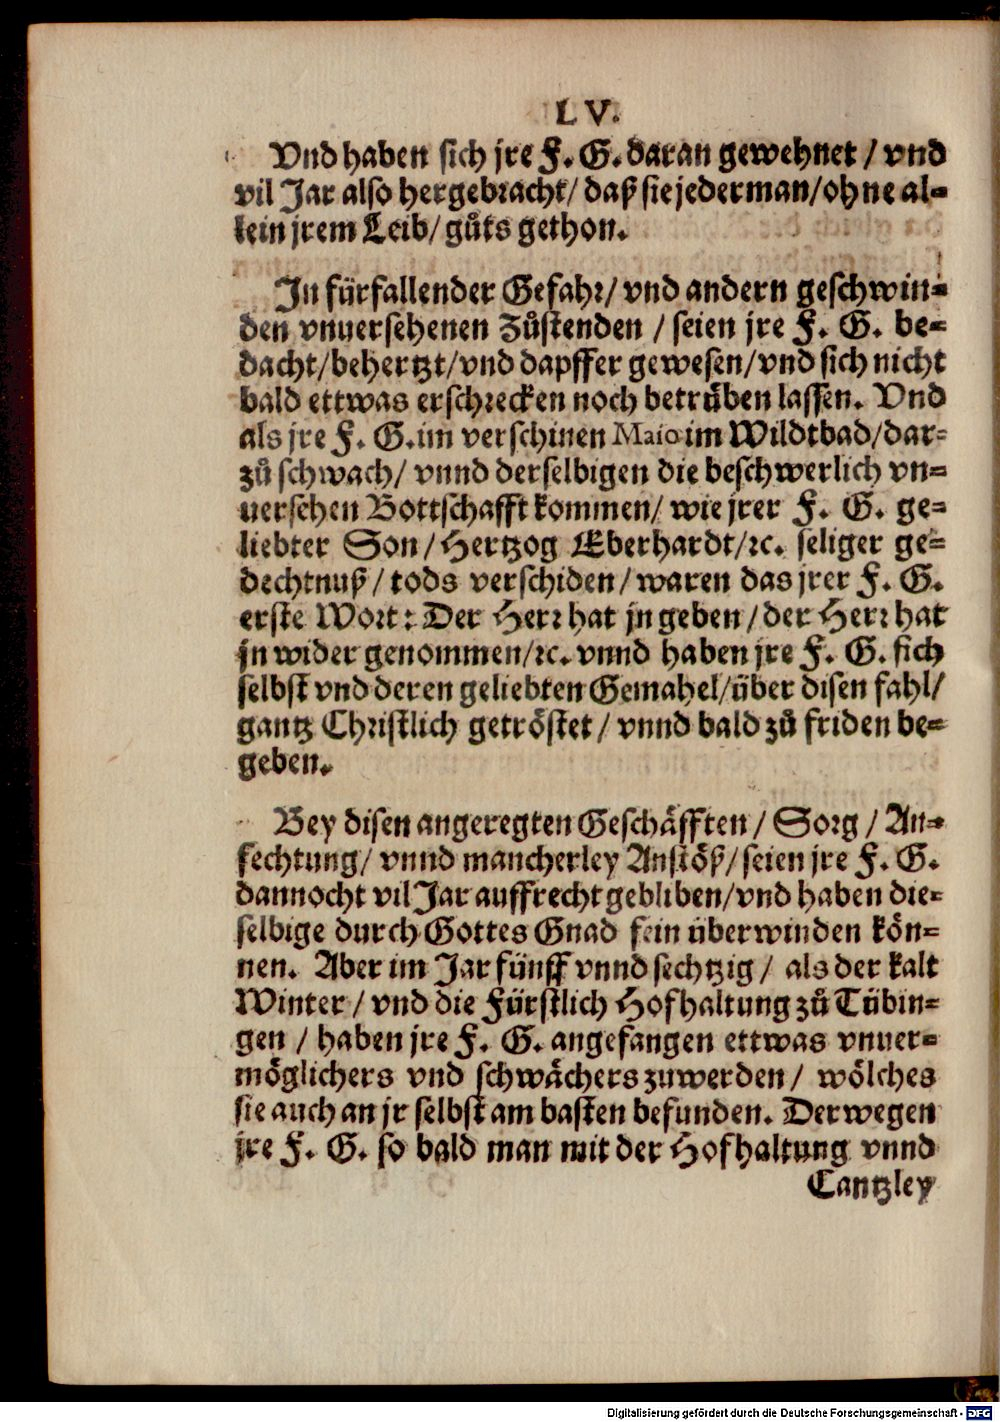 LV.
Vnd haben sich jre F. G. daran gewehnet / vnd
vil Jar also hergebracht / daß sie jederman / ohne al-
lein jrem Leib / gůts gethon.
In fürfallender Gefahr / vnd andern geschwin-
den vnuersehenen Zůstenden / seien jre F. G. be-
dacht / behertzt / vnd dapffer gewesen / vnd sich nicht
bald ettwas erschrecken noch betrüben lassen. Vnd
als jre F. G. im verschinen Maio im Wildtbad / dar-
zů schwach / vnnd derselbigen die beschwerlich vn-
uersehen Bottschafft kommen / wie jrer F. G. ge-
liebter Son / Hertzog Eberhardt / ꝛc. seliger ge-
dechtnuß / tods verschiden / waren das jrer F. G.
erste Wort: Der Herr hat jn geben / der Herr hat
jn wider genommen / ꝛc. vnnd haben jre F. G. sich
selbst vnd deren geliebten Gemahel / über disen fahl /
gantz Christlich getröstet / vnnd bald zů friden be-
geben.
Bey disen angeregten Geschäfften / Sorg / An-
fechtung / vnnd mancherley Anstöß / seien jre F. G.
dannocht vil Jar auffrecht gebliben / vnd haben die-
selbige durch Gottes Gnad fein überwinden kön-
nen. Aber im Jar fünff vnnd sechtzig / als der kalt
Winter / vnd die Fürstlich Hofhaltung zů Tübin-
gen / haben jre F. G. angefangen ettwas vnuer-
möglichers vnd schwächers zuwerden / wölches
sie auch an jr selbst am basten befunden. Derwegen
jre F. G. so bald man mit der Hofhaltung vnnd
Cantzley
Digitalisierung gefördert durch die Deutsche Forschungsgemeinschaft - DFG